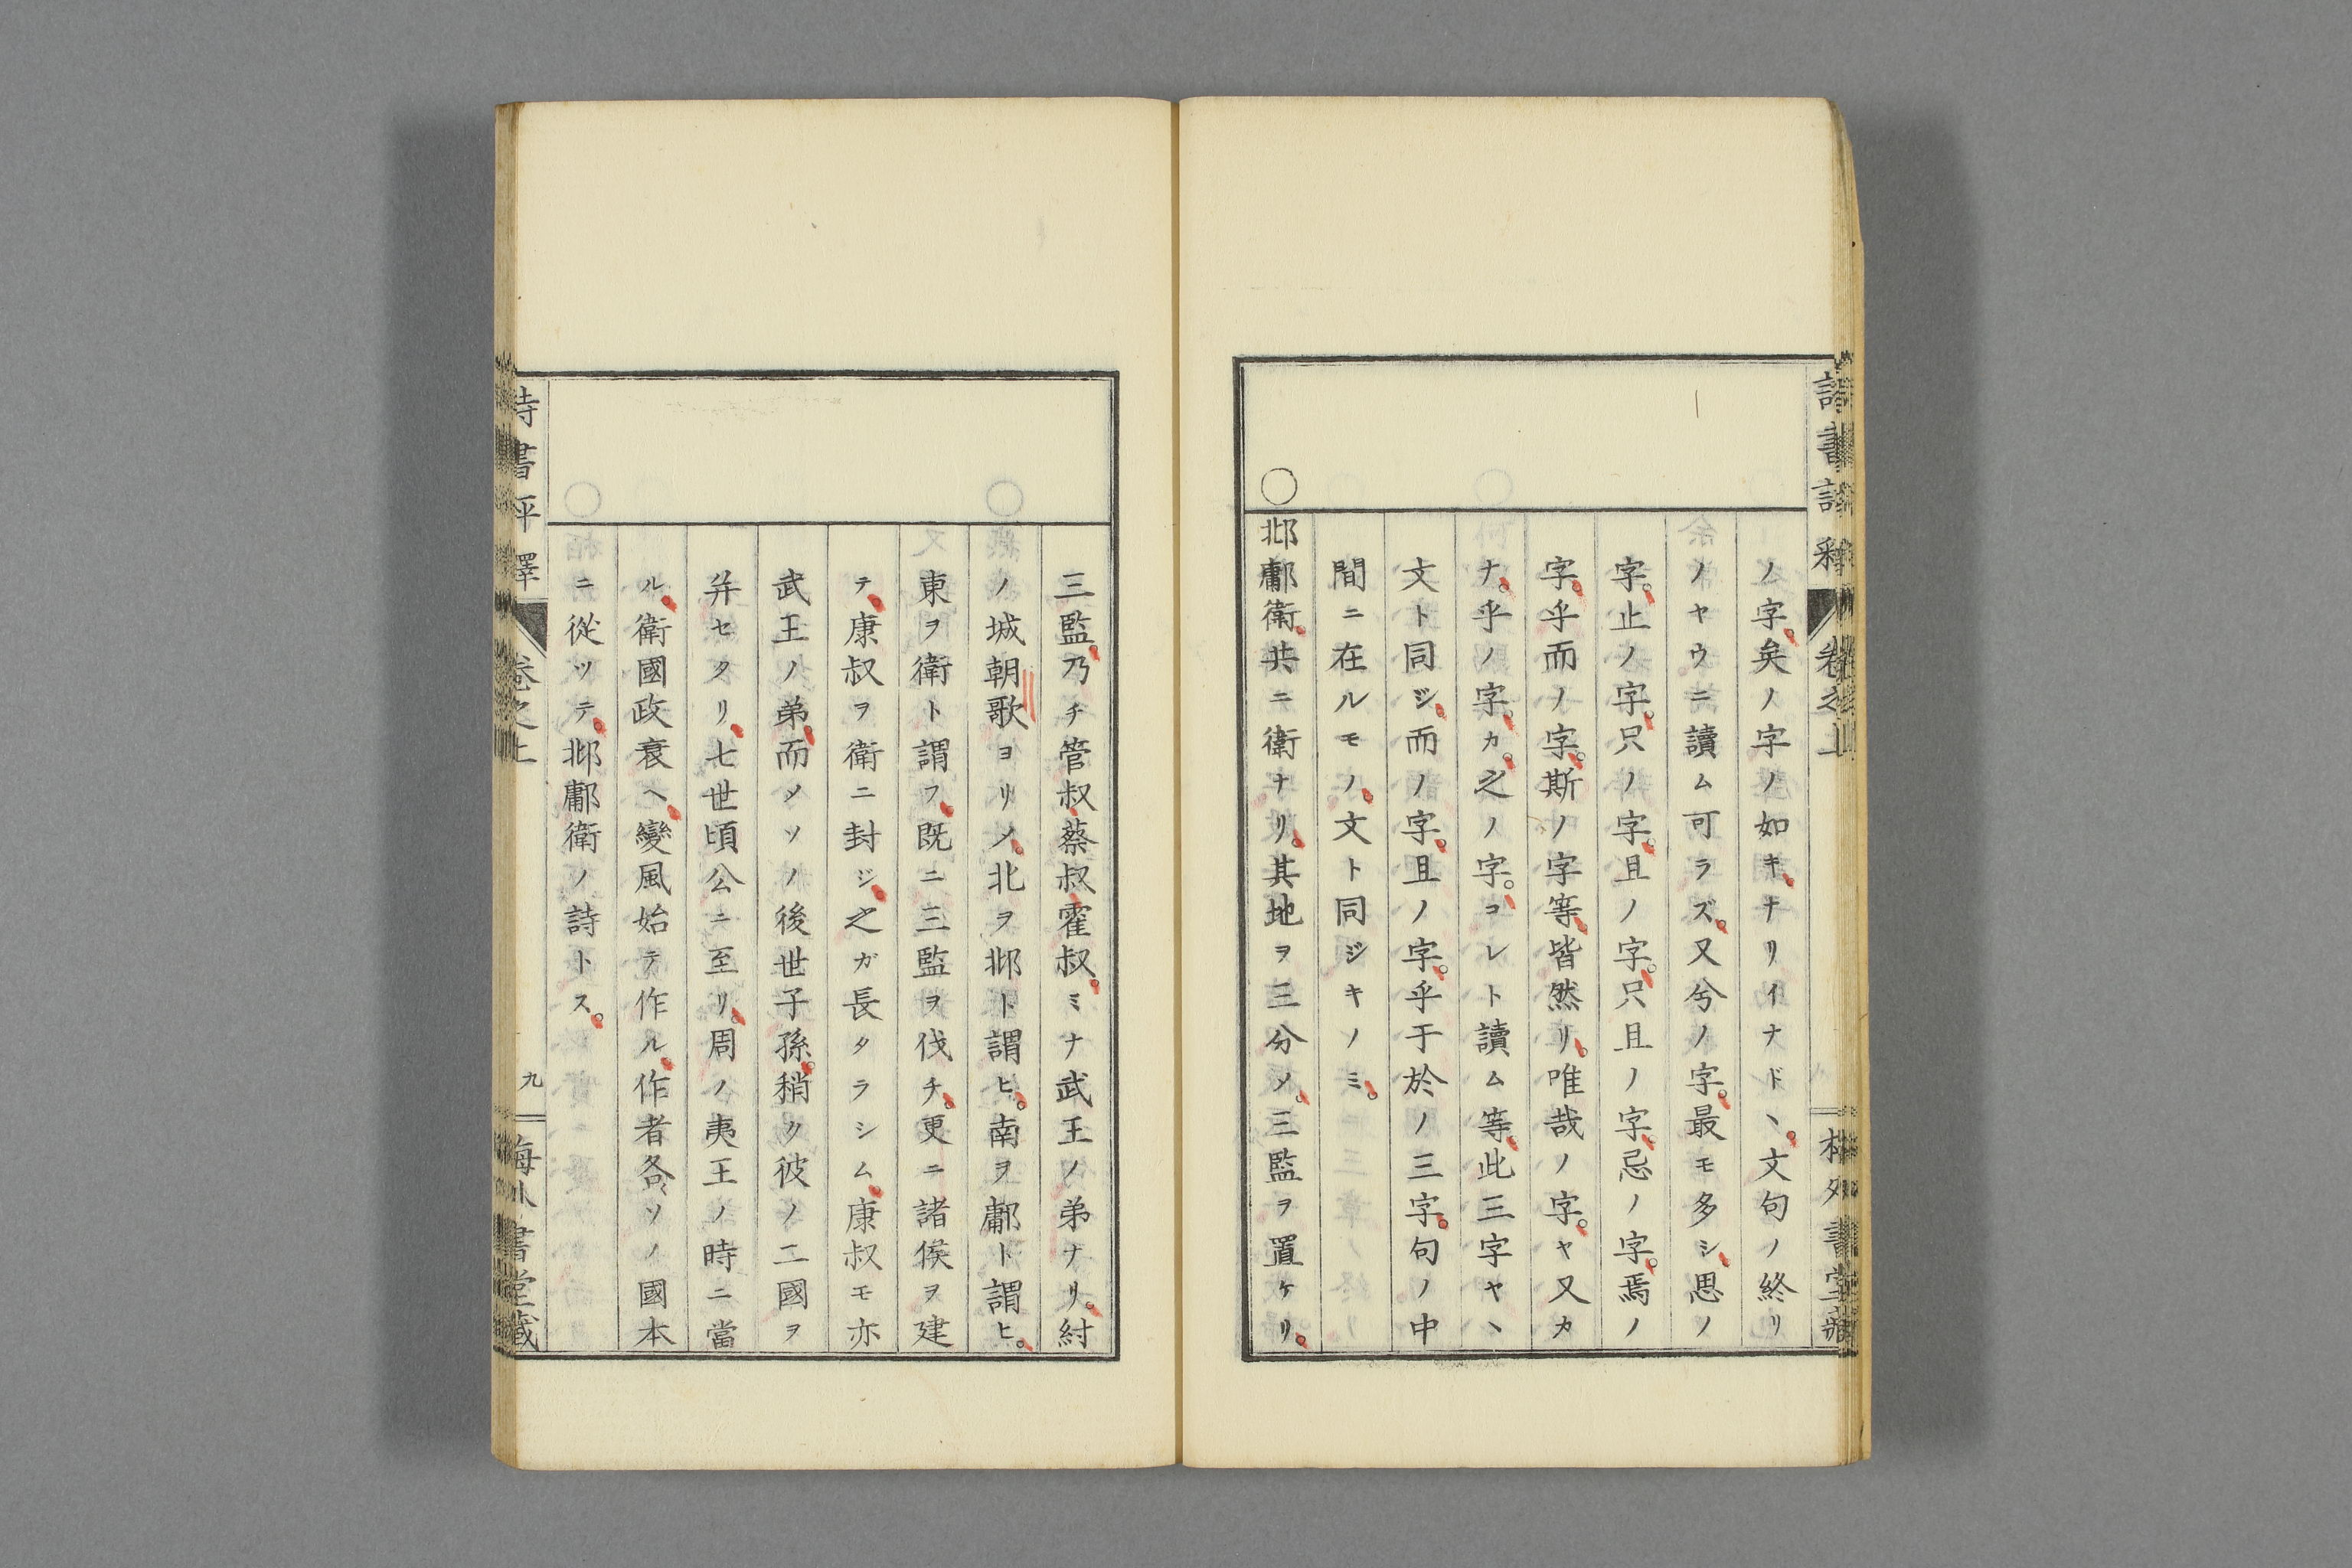 ノ字。矣ノ字ノ如キ。ナリイナド、。文句ノ終リ
ノヤウニ讀ム可ラズ。又兮ノ字。最モ多シ。思ノ
字。止ノ字。只ノ字。且ノ字。只且ノ字。忌ノ字。焉ノ
字。乎而ノ字。斯ノ字等。皆然リ。唯哉ノ字。ヤ又カ
ナ。乎ノ字。カ。之ノ字。コレト讀ム等。此三字ヤ、
文ト同ジ。而ノ字。且ノ字。乎于於ノ三字。句ノ中
間ニ在ルモノ。文ト同ジキノミ。
○邶鄘衛。共ニ衛ナリ。其地ヲ三分メ。三監ヲ置ケリ。
三監。乃チ管叔蔡叔霍叔。ミナ武王ノ弟ナリ。紂
ノ城朝歌ヨリメ。北ヲ邶ト謂ヒ。南ヲ鄘ト謂ヒ。
東ヲ衛ト謂フ。既ニ三監ヲ伐チ。更ニ諸侯ヲ建
テ。康叔ヲ衛ニ封ジ。之ガ長タラシム。康叔モ亦
武王ノ弟。而メソノ後世子孫。稍ク彼ノ二國ヲ
并セタリ。七世頃公ニ至リ。周ノ夷王ノ時ニ當
ル。衛國政衰ヘ。變風始テ作ル。作者各〻ソノ國本
ニ從ツテ。邶鄘衛ノ詩トス。
九